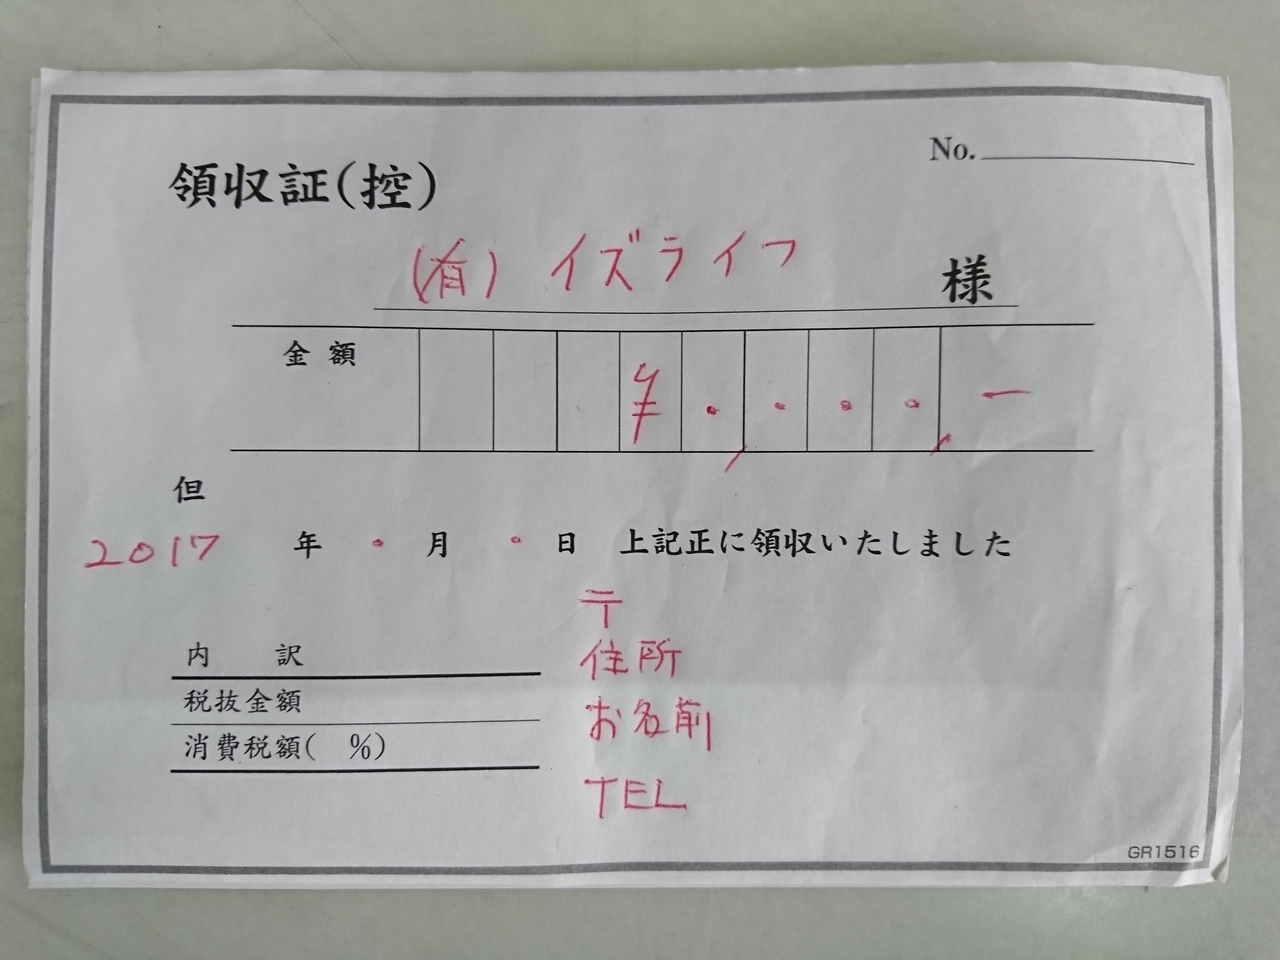 No.
領収証(控)
(有) イズライフ 様
金額 ¥・,・・・,ー
但
2017 年 ・ 月 ・ 日 上記正に領収いたしました
〒
住所
内 訳
税抜金額
お名前
消費税額( %)
TEL
GR1516